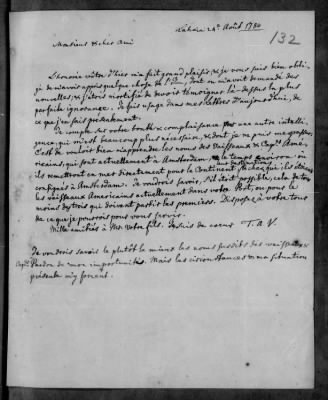 Lahaie 24e. Août 1780
132
Monsieur & cher Ami
L'honorée vôtre d'hier m'a fait grand plaisir; & je vous suis bien obli-
gé de m'avoir appris quelque chose de l' dont on m'avoit demandé des
nouvelles, & j'étois mortifié de devoir témoigner là-dessus la plus
parfaite ignorance. Je fais usage dans mes lettres d'aujourd'hui, de
ce que j'en sais présentement.
Je compte sur votre bonté & complaisance pour une autre intelli-
gence, qui m'est beaucoup plus nécessaire, & dont je ne puis me passer.
C'est de vouloir bien m'apprendre les noms des Vaisseaux & Capes. Amé-
ricains qui sont actuellement à Amsterdam, le temps environ où
ils remettront en mer directement pour le Continent, & chez qui ils sont
consignés à Amsterdam. Je voudrois savoir, s'il est possible, cela de tous
les vaisseaux Américains actuellement dans votre Port, ou pour le
moins de trois qui doivent partir les premiers. Disposez à votre tour
de ce que je pourrois pour vous servir.
Mille amitiés à Mr. Votre fils. Je suis de coeur T. à V.
Je voudrois savoir le plutôt le mieux les noms susdits des vaisseaux &
Capes. Pardon de mon importunité. Mais les circonstances & ma situation
présente m'y forcent.